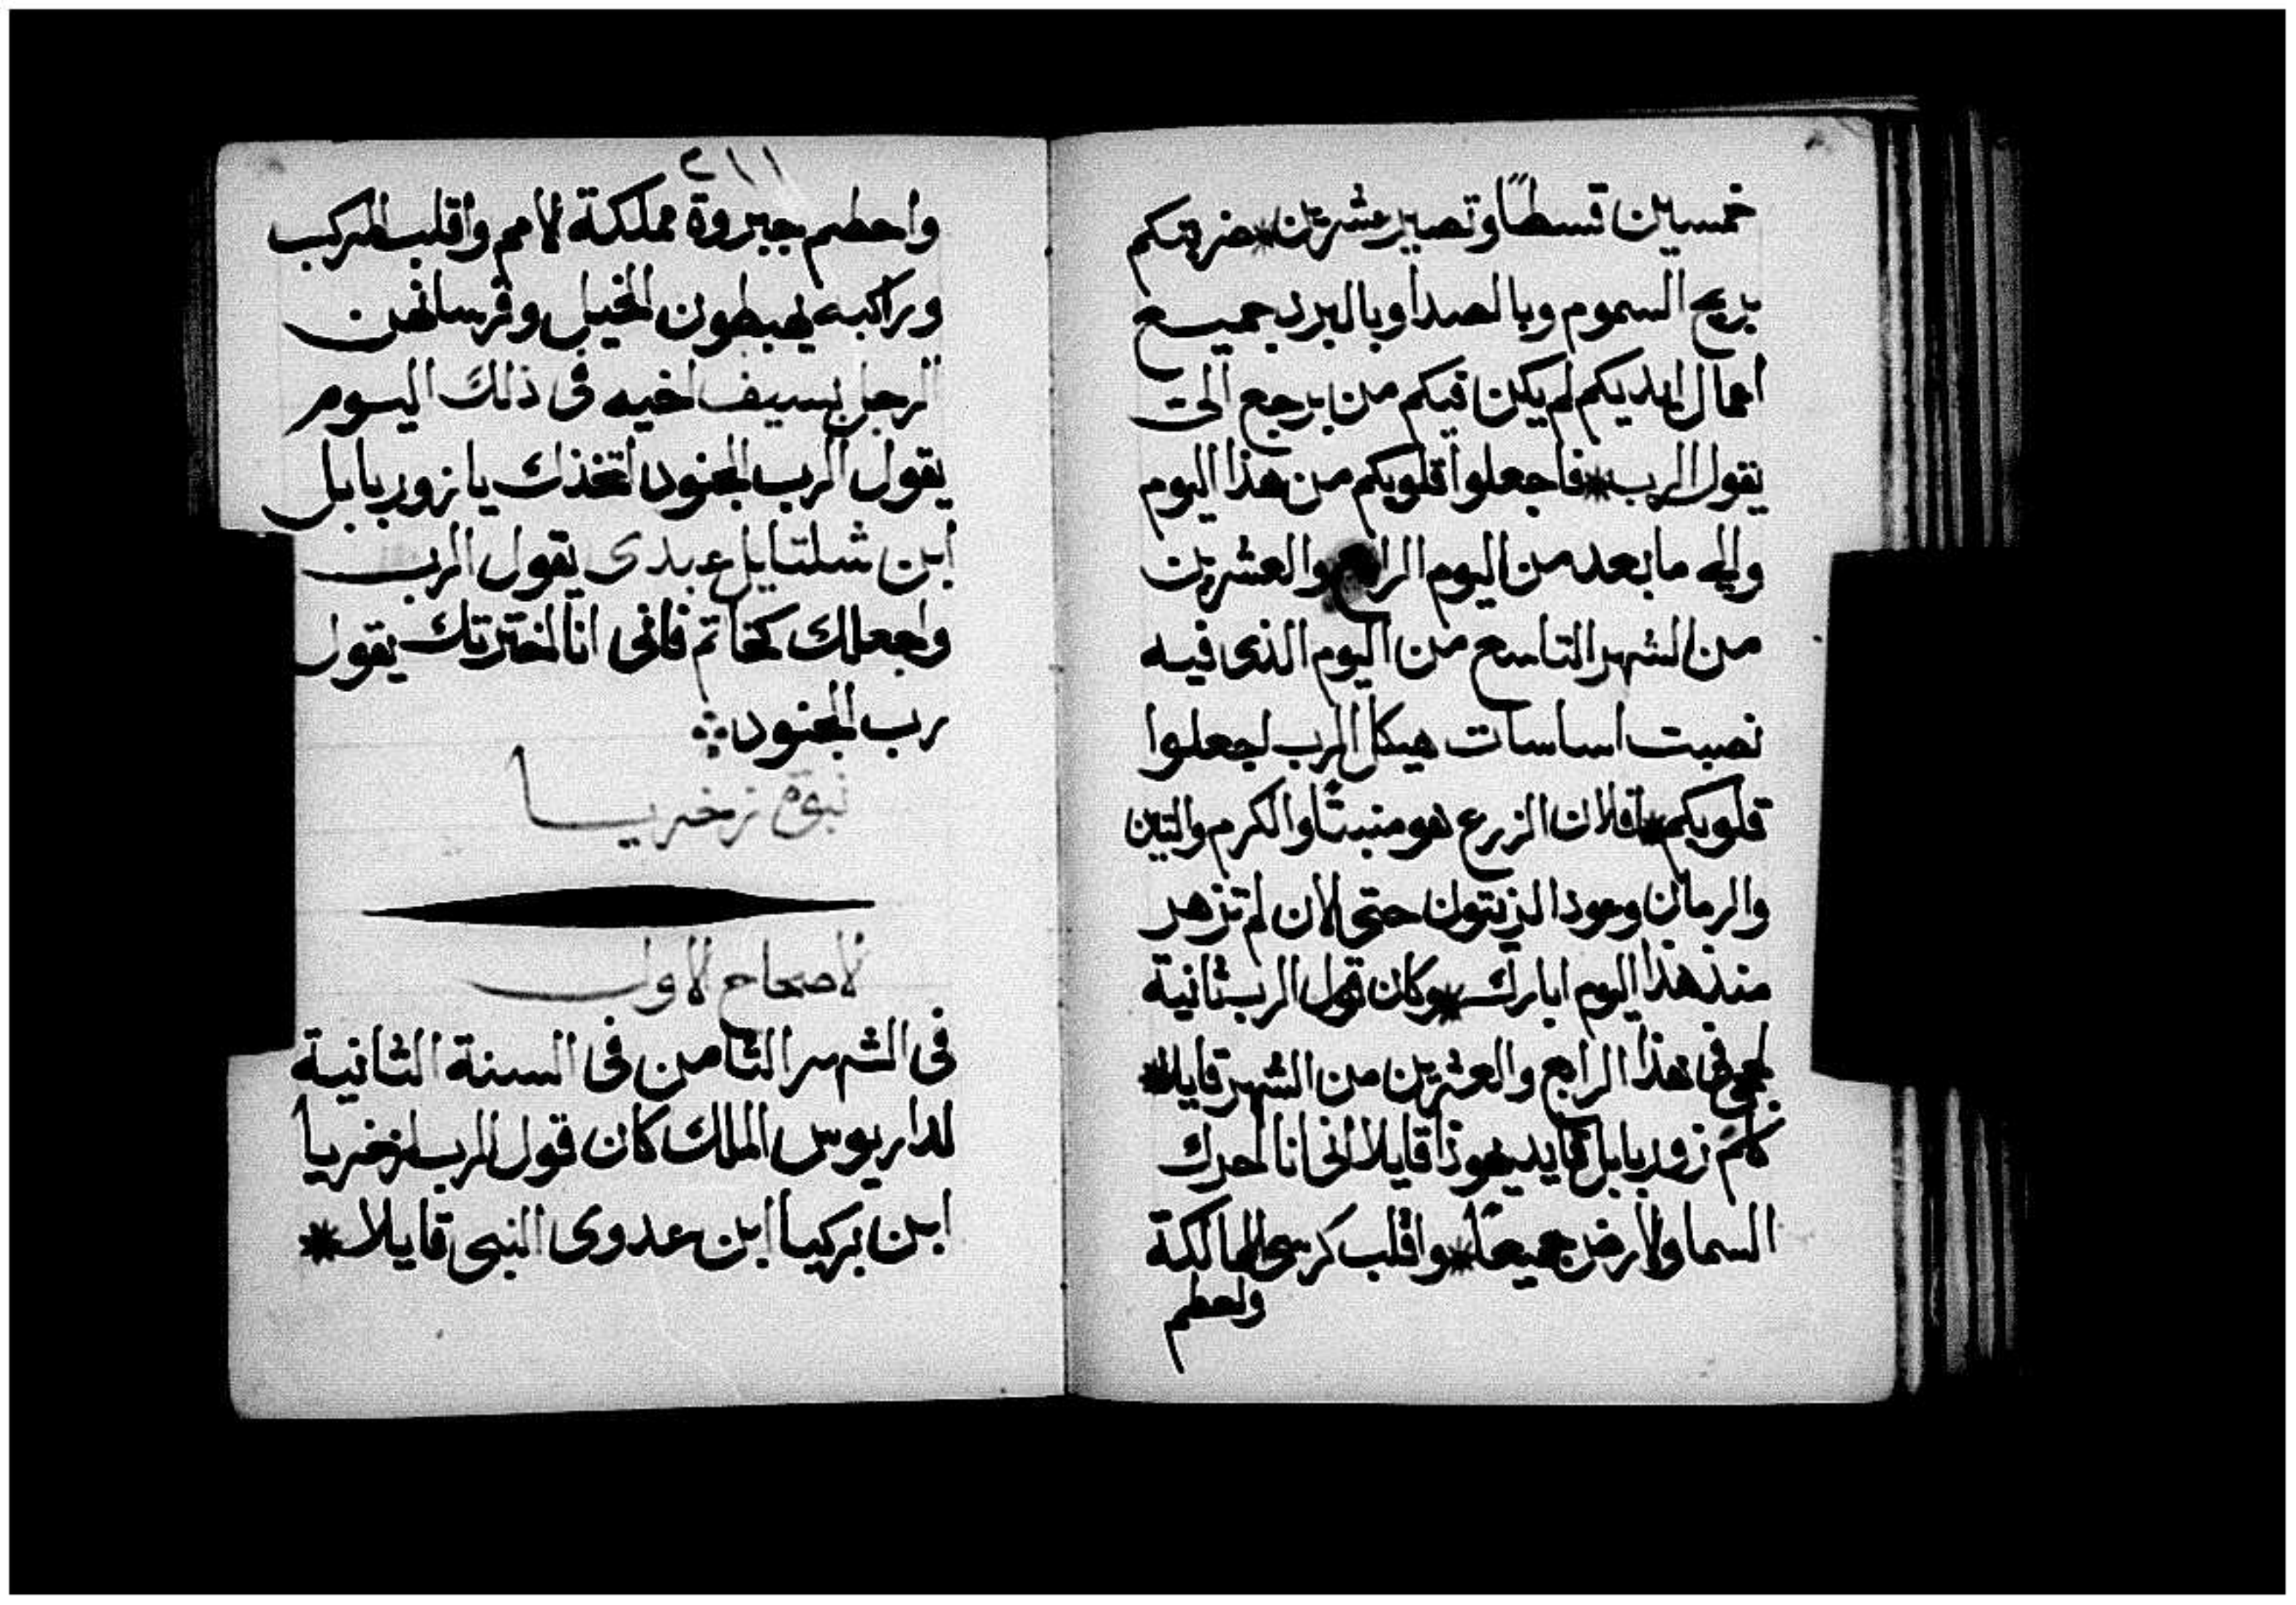 خمسين قسطًا وتصير عشرين * ضربتكم
بريح السموم وبالصدا وبالبرد جميع
اعمال ايديكم لم يكن فيكم من يرجع الىّ
يقول الرب * فاجعلوا قلوبكم من هذا اليوم
والى ما بعد من اليوم الرابع والعشرين
من الشهر التاسع من اليوم الذى فيه
نصبت اساسات هيكل الرب اجعلوا
قلوبكم * افلان الزرع هو منبتًا والكرم والتين
والرمان وعود الزيتون حتى الان لم تزهر
منذ هذا اليوم ابارك * وكان قول الرب ثانية
لحجى فى هذا الرابع والعشرين من الشهر قايلا *
كلم زوربابل قايد يهوذا قايلا انى انا احرك
السما والارض جميعًا * واقلب كرسى المالكة
واحطم
٢١١
واحطم جبروة مملكة الامم واقلب المركب
وراكبه يهبطون الخيل وفرسانهن
الرجل بسيف اخيه فى ذلك اليوم
يقول الرب الجنود اتخذك يا زوربابل
ابن شلتايل عبدى يقول الرب
واجعلك كخاتم فانى انا اخترتك يقول
رب الجنود
نبوة زخريا
الاصحاح الاول
فى الشهر الثامن فى السنة الثانية
لداريوس الملك كان قول الرب لزخريا
ابن بركيا ابن عدوى النبى قايلا *